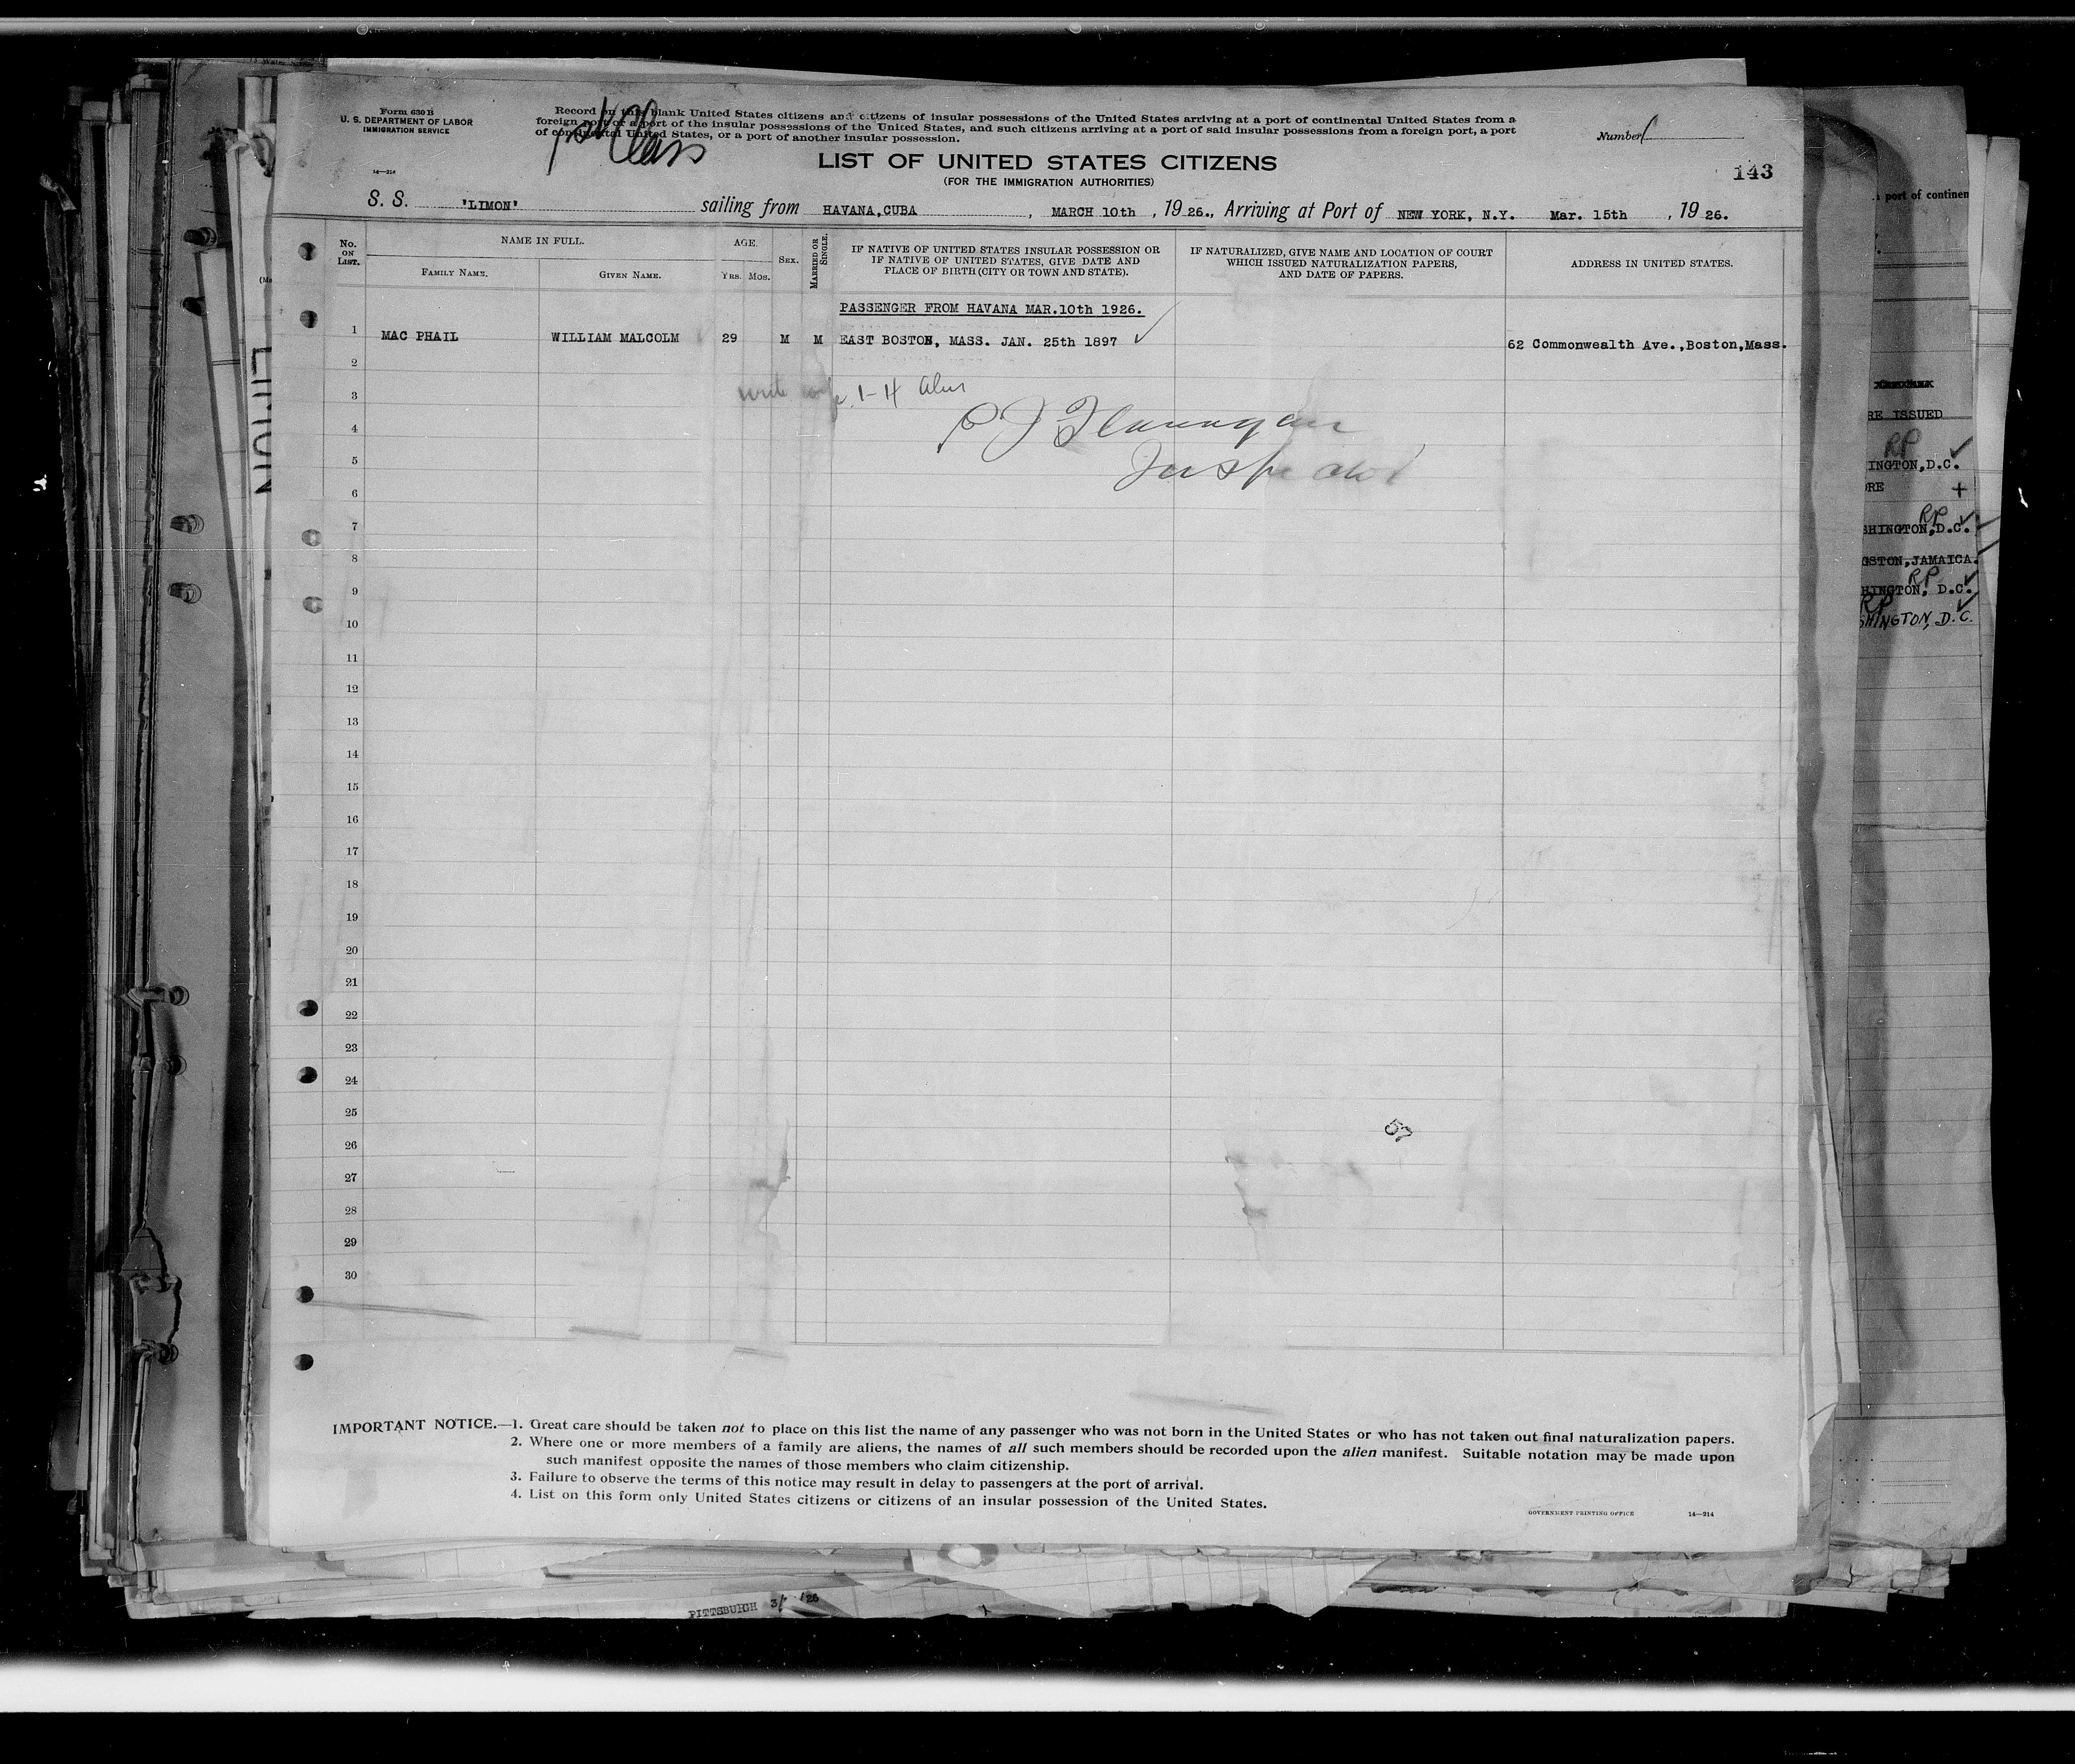 Form 630 B
U. S. DEPARTMENT OF LABOR
IMMIGRATION SERVICE
14—214
Record on this blank United States citizens and citizens of insular possessions of the United States arriving at a port of continental United States from a
foreign port or a port of the insular possessions of the United States, and such citizens arriving at a port of said insular possessions from a foreign port, a port
of continental United States, or a port of another insular possession.
Class
Number
LIST OF UNITED STATES CITIZENS
(FOR THE IMMIGRATION AUTHORITIES)
143
S. S. "LIMON" sailing from HAVANA,CUBA , MARCH 10th , 1926., Arriving at Port of NEW YORK, N.Y. Mar. 15th , 1926.
No. ON LIST.
NAME IN FULL.
FAMILY NAME.
GIVEN NAME.
AGE.
YRS. MOS.
SEX.
MARRIED OR SINGLE.
IF NATIVE OF UNITED STATES INSULAR POSSESSION OR
IF NATIVE OF UNITED STATES, GIVE DATE AND
PLACE OF BIRTH (CITY OR TOWN AND STATE).
IF NATURALIZED, GIVE NAME AND LOCATION OF COURT
WHICH ISSUED NATURALIZATION PAPERS,
AND DATE OF PAPERS.
ADDRESS IN UNITED STATES.
PASSENGER FROM HAVANA MAR.10th 1926.
1 MAC PHAIL WILLIAM MALCOLM 29 M M EAST BOSTON, MASS. JAN. 25th 1897 62 Commonwealth Ave.,Boston,Mass.
2
3 1-4
4 Flannagan
5 Inspector
6
7
8
9
10
11
12
13
14
15
16
17
18
19
20
21
22
23
24
25
57
26
27
28
29
30
IMPORTANT NOTICE.—1. Great care should be taken not to place on this list the name of any passenger who was not born in the United States or who has not taken out final naturalization papers.
2. Where one or more members of a family are aliens, the names of all such members should be recorded upon the alien manifest. Suitable notation may be made upon
such manifest opposite the names of those members who claim citizenship.
3. Failure to observe the terms of this notice may result in delay to passengers at the port of arrival.
4. List on this form only United States citizens or citizens of an insular possession of the United States.
GOVERNMENT PRINTING OFFICE 14—214
a port of continen
RE ISSUED
RP
INGTON,D.C.
RE +
RP
SHINGTON,D.C.
GSTON,JAMAICA.
RP
HINGTON, D.C.
RP
SHINGTON, D.C.
LIMON
PITTSBURGH